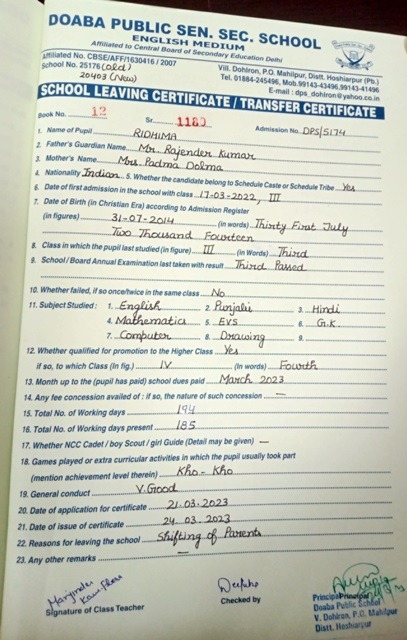 DOABA PUBLIC SEN. SEC. SCHOOL
ENGLISH MEDIUM
Affiliated to Central Board of Secondary Education Delhi
Affiliated No. CBSE/AFF/1630416 / 2007
School No. 25176 (old)
20403 (New)
Vill. Dohlron, P.O. Mahilpur, Distt. Hoshiarpur (Pb.)
Tel. 01884-245496, Mob.99143-43496,99143-41496
E-mail : dps_dohlron@yahoo.co.in
SCHOOL LEAVING CERTIFICATE / TRANSFER CERTIFICATE
Book No. 12 Sr. 1180 Admission No. DPS/5174
1. Name of Pupil RIDHIMA
2. Father's Guardian Name Mr. Rajender Kumar
3. Mother's Name Mrs. Padma Dolma
4. Nationality Indian 5. Whether the candidate belong to Schedule Caste or Schedule Tribe Yes
6. Date of first admission in the school with class 17-03-2022, III
7. Date of Birth (in Christian Era) according to Admission Register
(in figures) 31-07-2014 (in words) Thirty First July
Two Thousand Fourteen
8. Class in which the pupil last studied (in figure) III (in Words) Third
9. School / Board Annual Examination last taken with result Third Passed
10. Whether failed, if so once/twice in the same class No
11. Subject Studied : 1. English 2. Punjabi 3. Hindi
4. Mathematics 5. EVS 6. G.K.
7. Computer 8. Drawing 9.
12. Whether qualified for promotion to the Higher Class Yes
if so, to which Class (In fig.) IV (In words) Fourth
13. Month up to the (pupil has paid) school dues paid March 2023
14. Any fee concession availed of : if so, the nature of such concession —
15. Total No. of Working days 194
16. Total No. of Working days present 185
17. Whether NCC Cadet / boy Scout / girl Guide (Detail may be given) —
18. Games played or extra curricular activities in which the pupil usually took part
(mention achievement level therein) Kho-Kho
19. General conduct V.Good
20. Date of application for certificate 21.03.2023
21. Date of issue of certificate 24.03.2023
22. Reasons for leaving the school Shifting of Parents
23. Any other remarks —
Signature of Class Teacher
Checked by
Principal
Doaba Public School
V. Dohlron, P.O. Mahilpur
Distt. Hoshiarpur